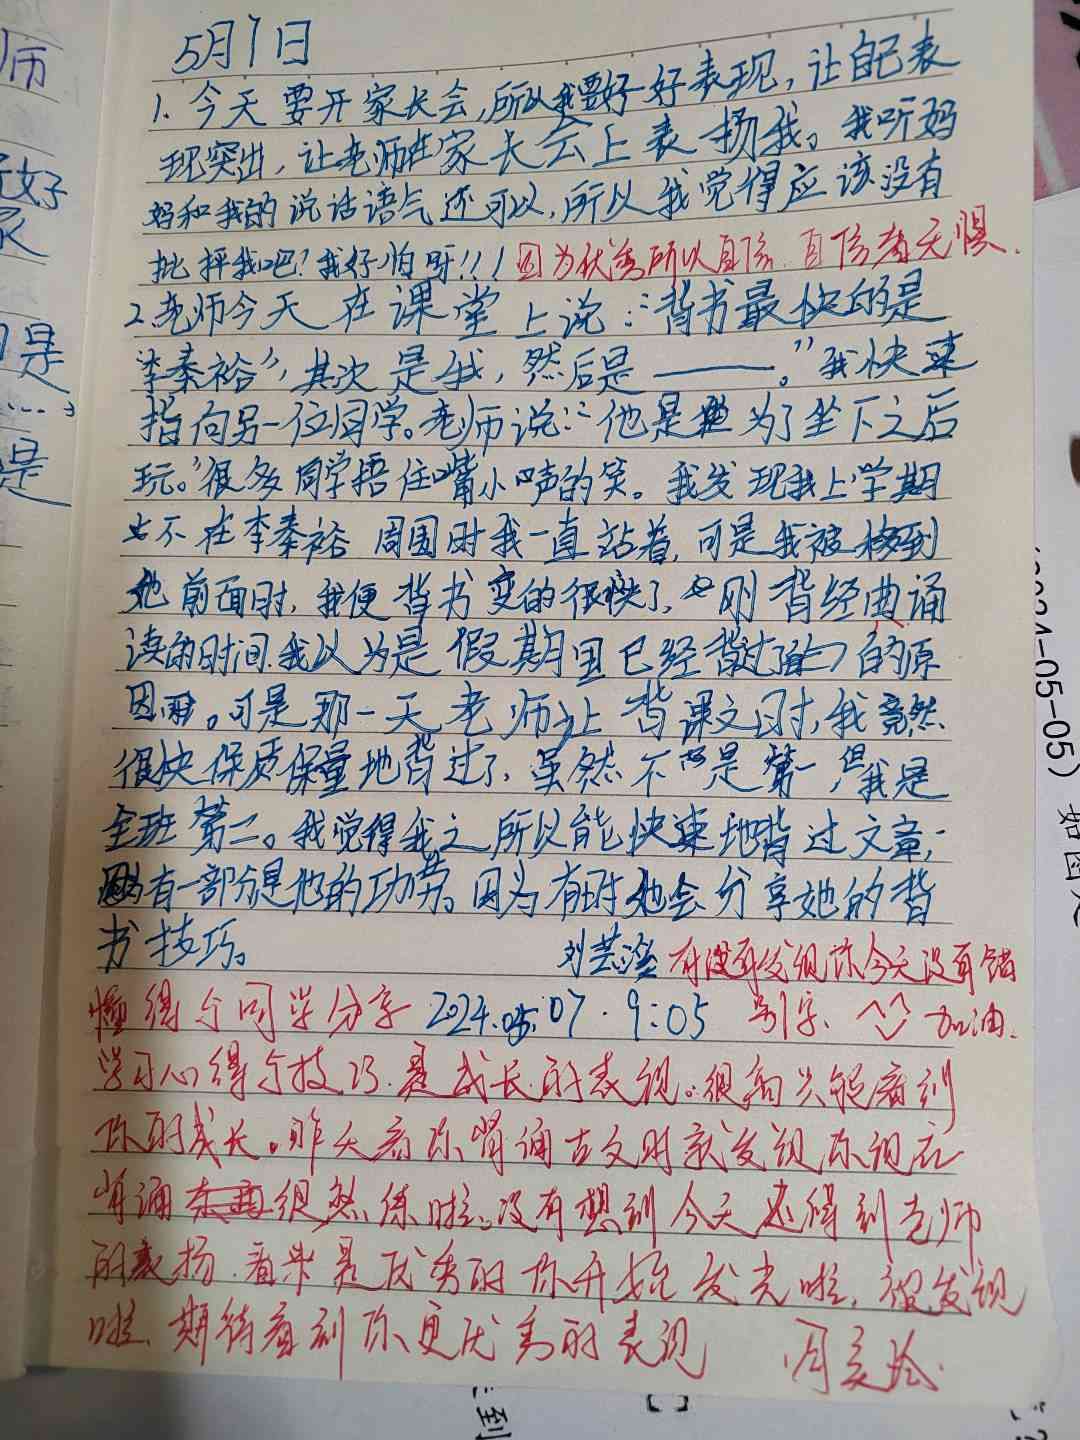 5月7日
1. 今天要开家长会,所以我要好好表现,让自己表
现突出,让老师在家长会上表扬我。我听妈
妈和我的说话语气还可以,所以我觉得应该没有
批评我吧?我好怕呀!!!因为优秀所以自信,自信者无惧.
2.老师今天在课堂上说:“背书最快的是
李秦裕”,其次是我,然后是———。”我快速
指向另一位同学。老师说:“他是为了坐下之后
玩。”很多同学捂住嘴小声的笑。我发现我上学期
不在李秦裕周围时我一直站着,可是我被移到
他前面时,我便背书变的很快了,刚背经典诵
读的时间,我以为是假期里已经背过的原
因。可是那一天老师让背课文时,我竟然
很快保质保量地背过了,虽然不是第一,但我是
全班第二。我觉得我之所以能快速地背过文章,
有一部分是他的功劳。因为有时他会分享她的背
书技巧。
刘芸滢 有没有发现你今天没有错
懂得与同学分享 2024.05.07.9:05 别字. 加油.
学习心得与技巧.是成长的表现。很高兴能看到
你的成长。昨天看你背诵古文时就发现你现在
背诵很熟练啦。没有想到今天还得到老师
的表扬.看来是优秀的你开始发光啦,被发现
啦.期待看到你更优秀的表现
师
好
是
是
2024-05-05) 如图
到